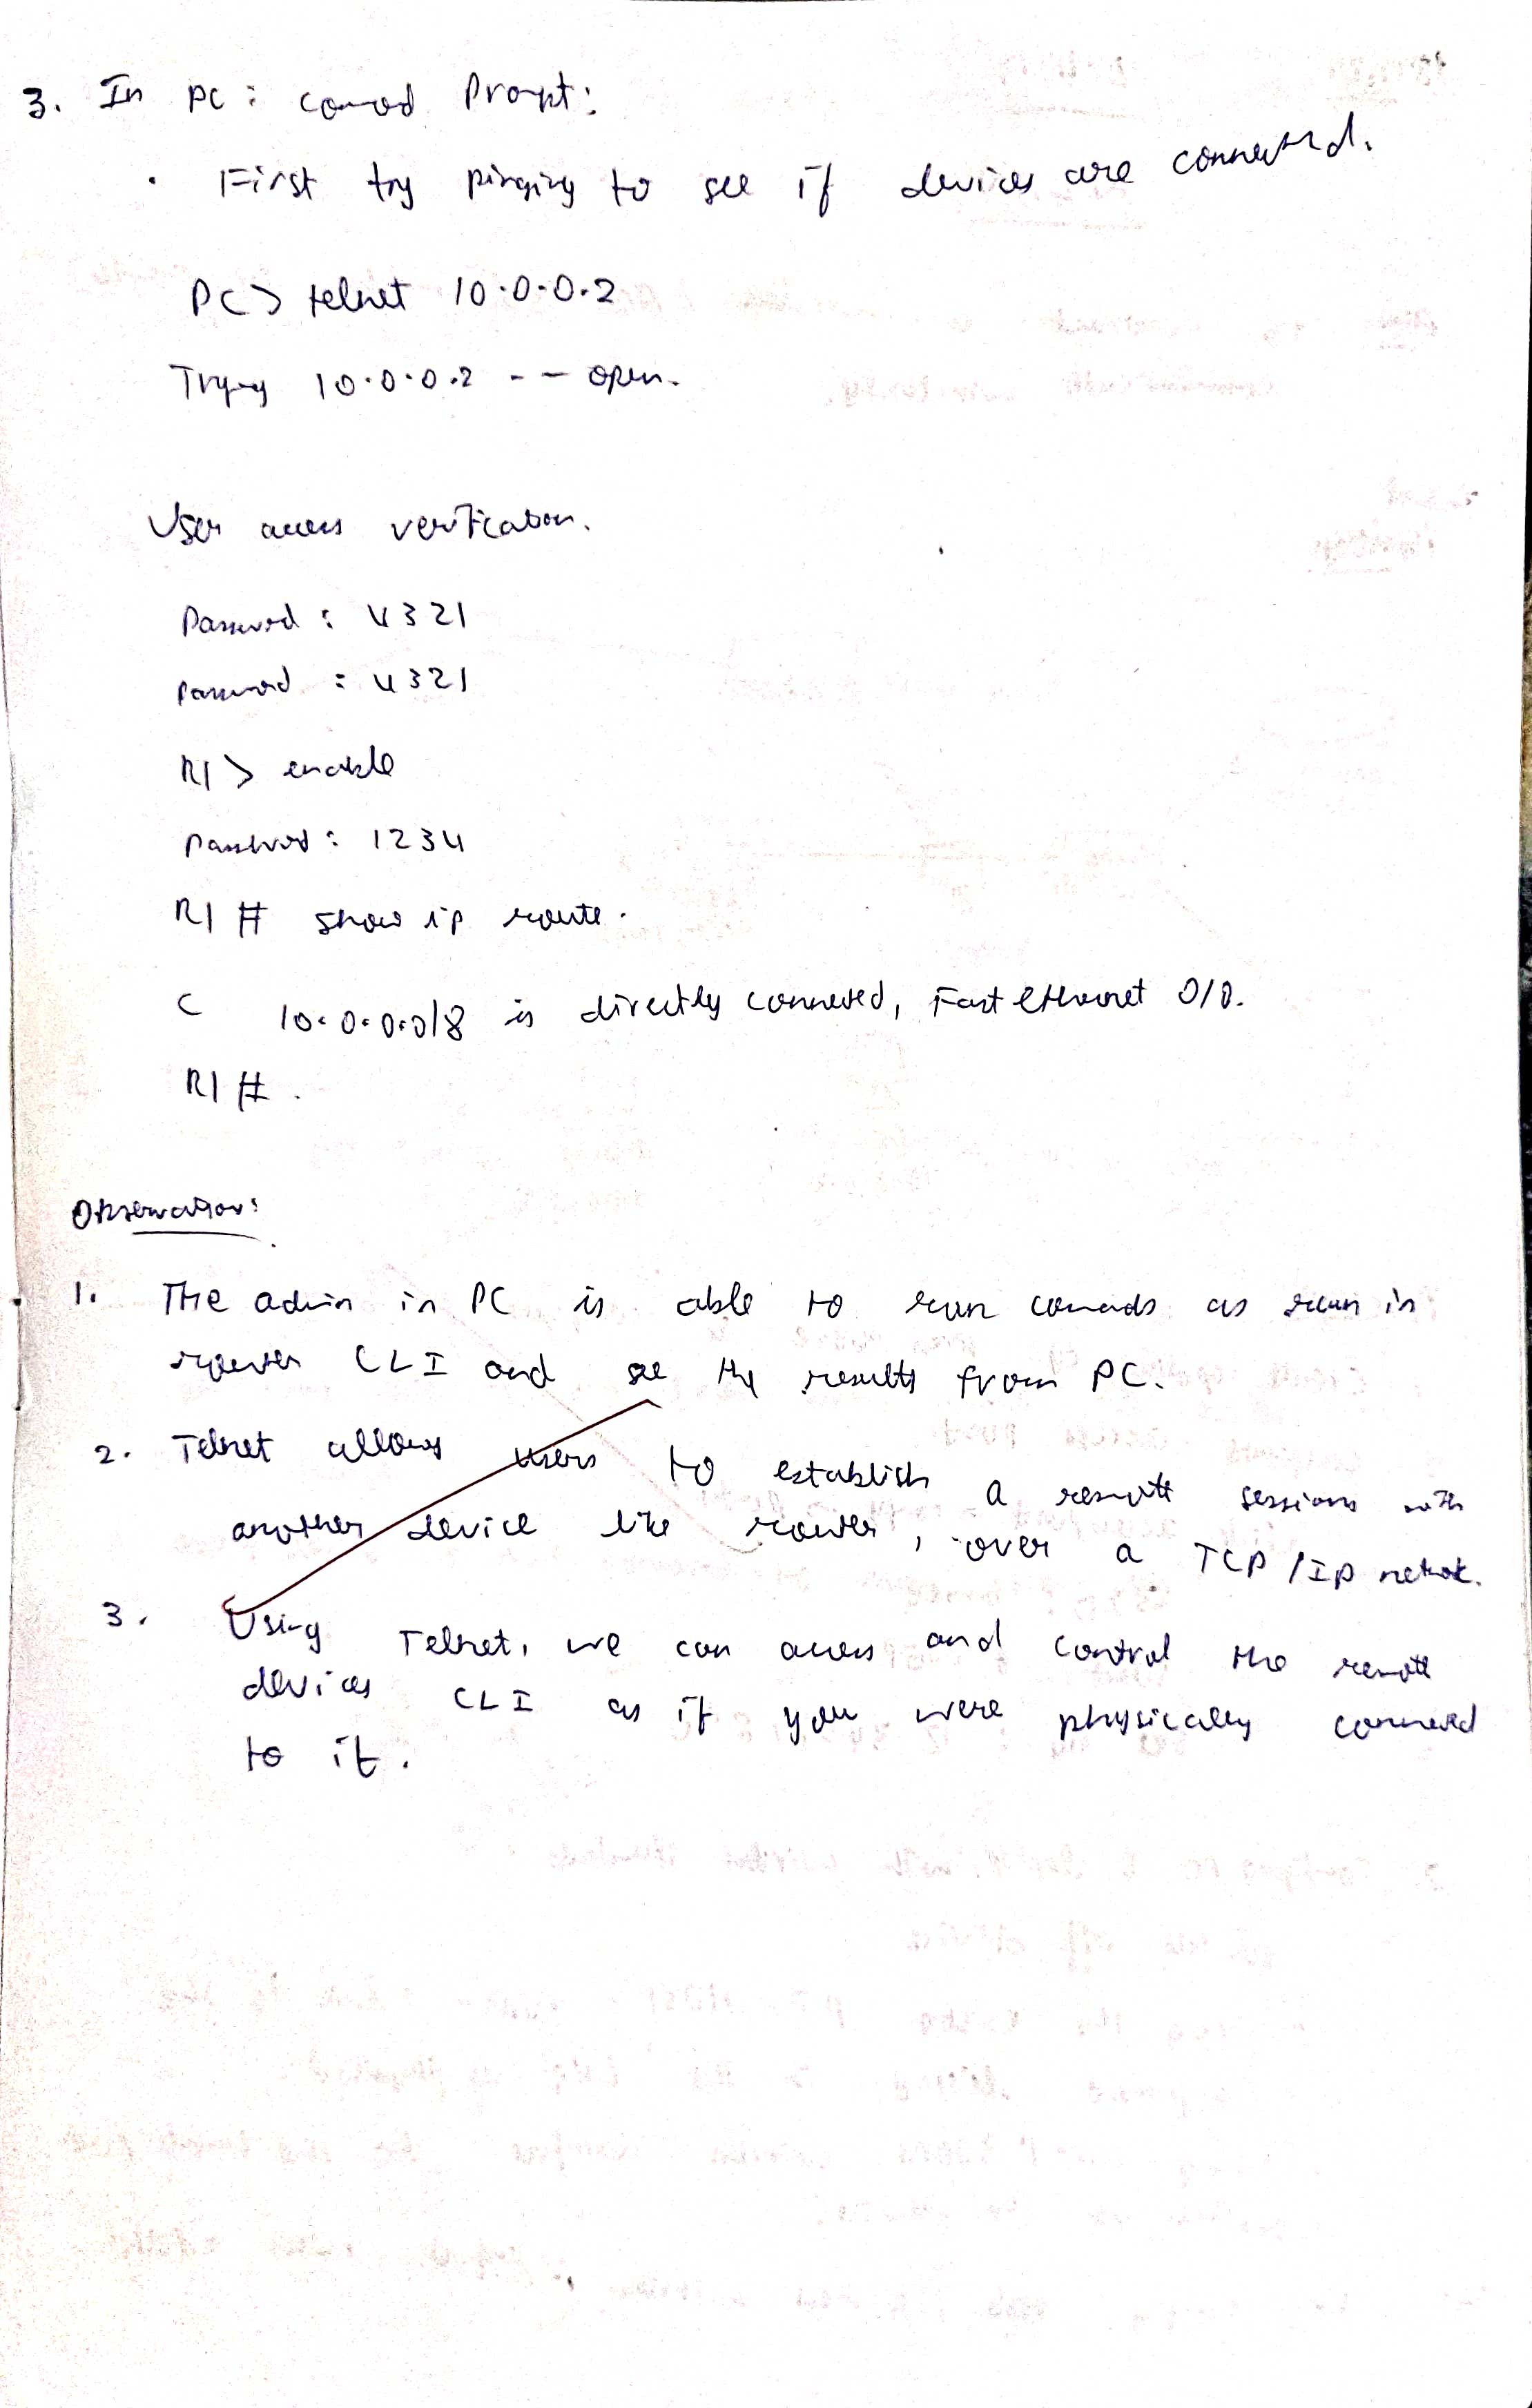 3. In PC: comod Prompt:
· First try pinging to see if devices are connected.
PC> telnet 10.0.0.2
Trying 10.0.0.2 -- open.
User access verification.
Password: 4321
Password: 4321
R1> enable
Password: 1234
R1# show ip route.
C 10.0.0.0/8 is directly connected, Fastethernet 0/0.
R1#.
Observation:
1. The admin in PC is able to run comands as run in
router CLI and see the results from PC.
2. Telnet allows users to establish a remote sessions with
another device like router, over a TCP/IP network.
3. Using Telnet, we can access and control the remote
devices CLI as if you were physically connected
to it.